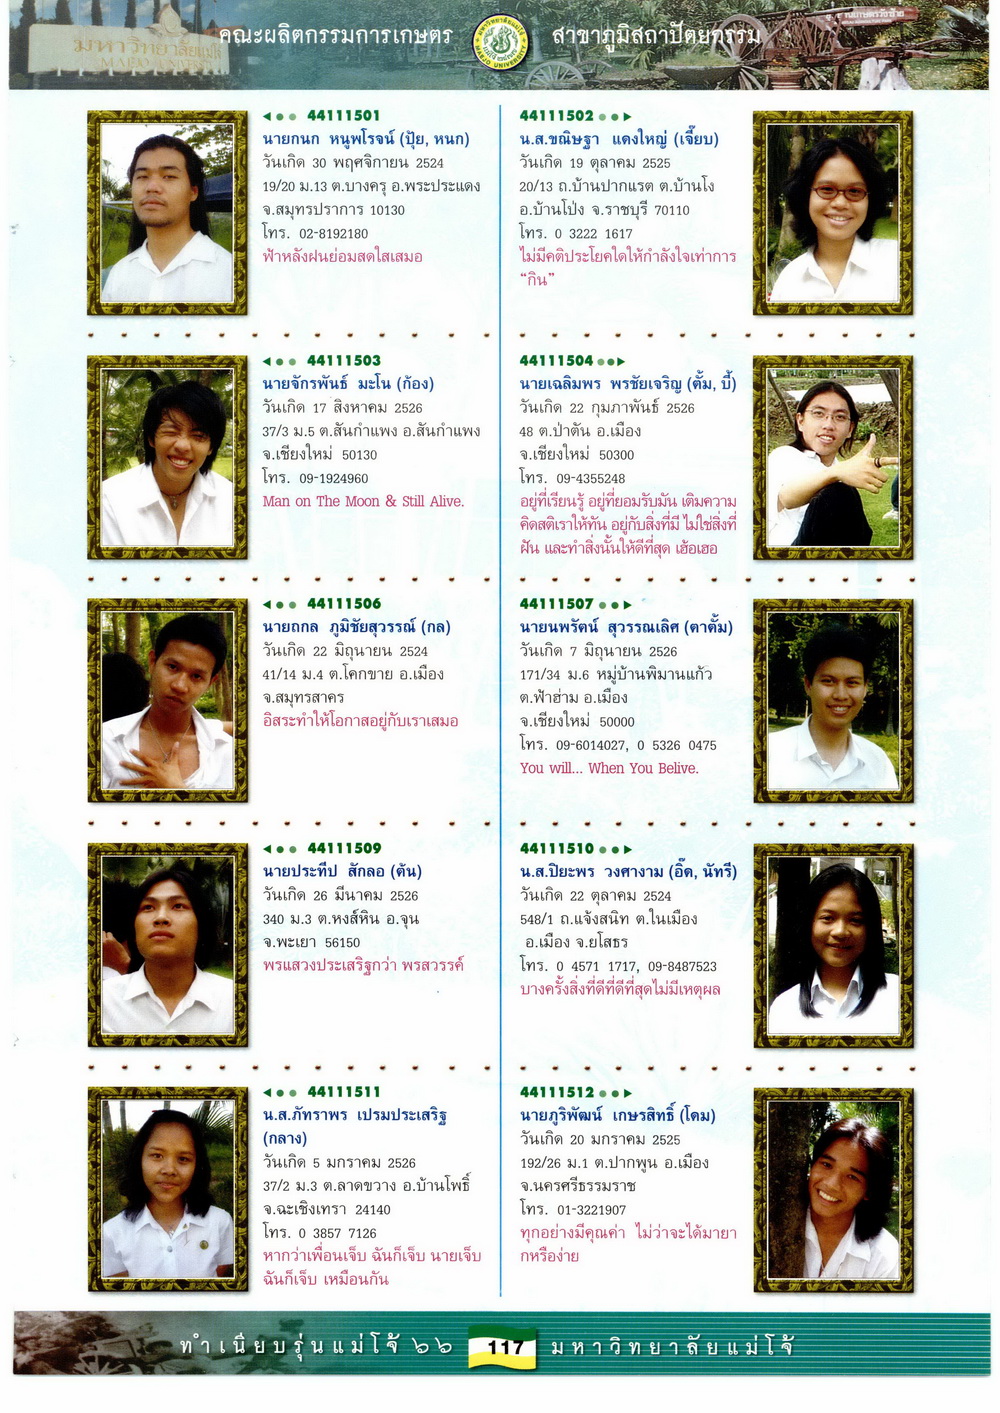 มหาวิทยาลัยแม่โจ้
MAEJO UNIVERSITY
คณะผลิตกรรมการเกษตร
มหาวิทยาลัยแม่โจ้
MAEJO UNIVERSITY
สาขาภูมิสถาปัตยกรรม
44111501
นายกนก หนูพโรจน์ (ปุ้ย, หนก)
วันเกิด 30 พฤศจิกายน 2524
19/20 ม.13 ต.บางครุ อ.พระประแดง
จ.สมุทรปราการ 10130
โทร. 02-8192180
ฟ้าหลังฝนย่อมสดใสเสมอ
44111502
น.ส.ขณิษฐา แดงใหญ่ (เจี๊ยบ)
วันเกิด 19 ตุลาคม 2525
20/13 ถ.บ้านปากแรต ต.บ้านโง
อ.บ้านโป่ง จ.ราชบุรี 70110
โทร. 0 3222 1617
ไม่มีคติประโยคใดให้กำลังใจเท่าการ
“กิน”
44111503
นายจักรพันธ์ มะโน (ก้อง)
วันเกิด 17 สิงหาคม 2526
37/3 ม.5 ต.สันกำแพง อ.สันกำแพง
จ.เชียงใหม่ 50130
โทร. 09-1924960
Man on The Moon & Still Alive.
44111504
นายเฉลิมพร พรชัยเจริญ (ตั้ม, บี้)
วันเกิด 22 กุมภาพันธ์ 2526
48 ต.ป่าตัน อ.เมือง
จ.เชียงใหม่ 50300
โทร. 09-4355248
อยู่ที่เรียนรู้ อยู่ที่ยอมรับมัน เติมความ
คิดสติเราให้ทัน อยู่กับสิ่งที่มี ไม่ใช่สิ่งที่
ฝัน และทำสิ่งนั้นให้ดีที่สุด เฮ้อเฮอ
44111506
นายถกล ภูมิชัยสุวรรณ์ (กล)
วันเกิด 22 มิถุนายน 2524
41/14 ม.4 ต.โคกขาย อ.เมือง
จ.สมุทรสาคร
อิสระทำให้โอกาสอยู่กับเราเสมอ
44111507
นายนพรัตน์ สุวรรณเลิศ (ตาตั้ม)
วันเกิด 7 มิถุนายน 2526
171/34 ม.6 หมู่บ้านพิมานแก้ว
ต.ฟ้าฮ่าม อ.เมือง
จ.เชียงใหม่ 50000
โทร. 09-6014027, 0 5326 0475
You will... When You Belive.
44111509
นายประทีป สักลอ (ต้น)
วันเกิด 26 มีนาคม 2526
340 ม.3 ต.หงส์หิน อ.จุน
จ.พะเยา 56150
พรแสวงประเสริฐกว่า พรสวรรค์
44111510
น.ส.ปิยะพร วงศางาม (อิ๊ด, นัทรี)
วันเกิด 22 ตุลาคม 2524
548/1 ถ.แจ้งสนิท ต.ในเมือง
อ.เมือง จ.ยโสธร
โทร. 0 4571 1717, 09-8487523
บางครั้งสิ่งที่ดีที่ดีที่สุดไม่มีเหตุผล
44111511
น.ส.ภัทราพร เปรมประเสริฐ
(กลาง)
วันเกิด 5 มกราคม 2526
37/2 ม.3 ต.ลาดขวาง อ.บ้านโพธิ์
จ.ฉะเชิงเทรา 24140
โทร. 0 3857 7126
หากว่าเพื่อนเจ็บ ฉันก็เจ็บ นายเจ็บ
ฉันก็เจ็บ เหมือนกัน
44111512
นายภูริพัฒน์ เกษรสิทธิ์ (โดม)
วันเกิด 20 มกราคม 2525
192/26 ม.1 ต.ปากพูน อ.เมือง
จ.นครศรีธรรมราช
โทร. 01-3221907
ทุกอย่างมีคุณค่า ไม่ว่าจะได้มายา
กหรือง่าย
ทำเนียบรุ่นแม่โจ้ ๖๖
117
มหาวิทยาลัยแม่โจ้